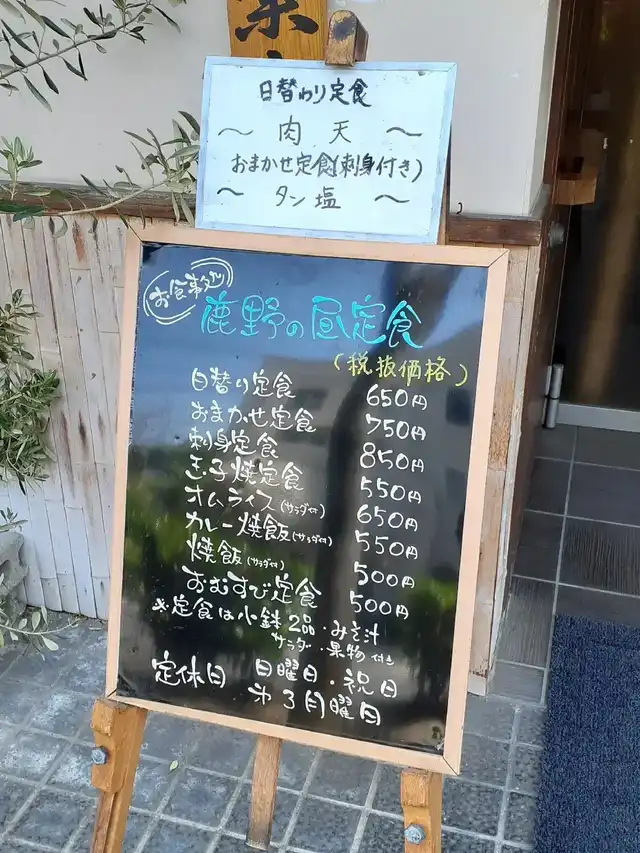 日替わり定食
～ 肉天 ～
おまかせ定食(刺身付き)
～ タン塩 ～
お食事処
鹿野の昼定食
(税抜価格)
日替り定食 650円
おまかせ定食 750円
刺身定食 850円
玉子焼定食 550円
オムライス(サラダ付) 650円
カレー焼飯(サラダ付) 550円
焼飯(サラダ付) 500円
おむすび定食 500円
※定食は小鉢2品・みそ汁
サラダ・果物付き
定休日 日曜日・祝日
第3月曜日